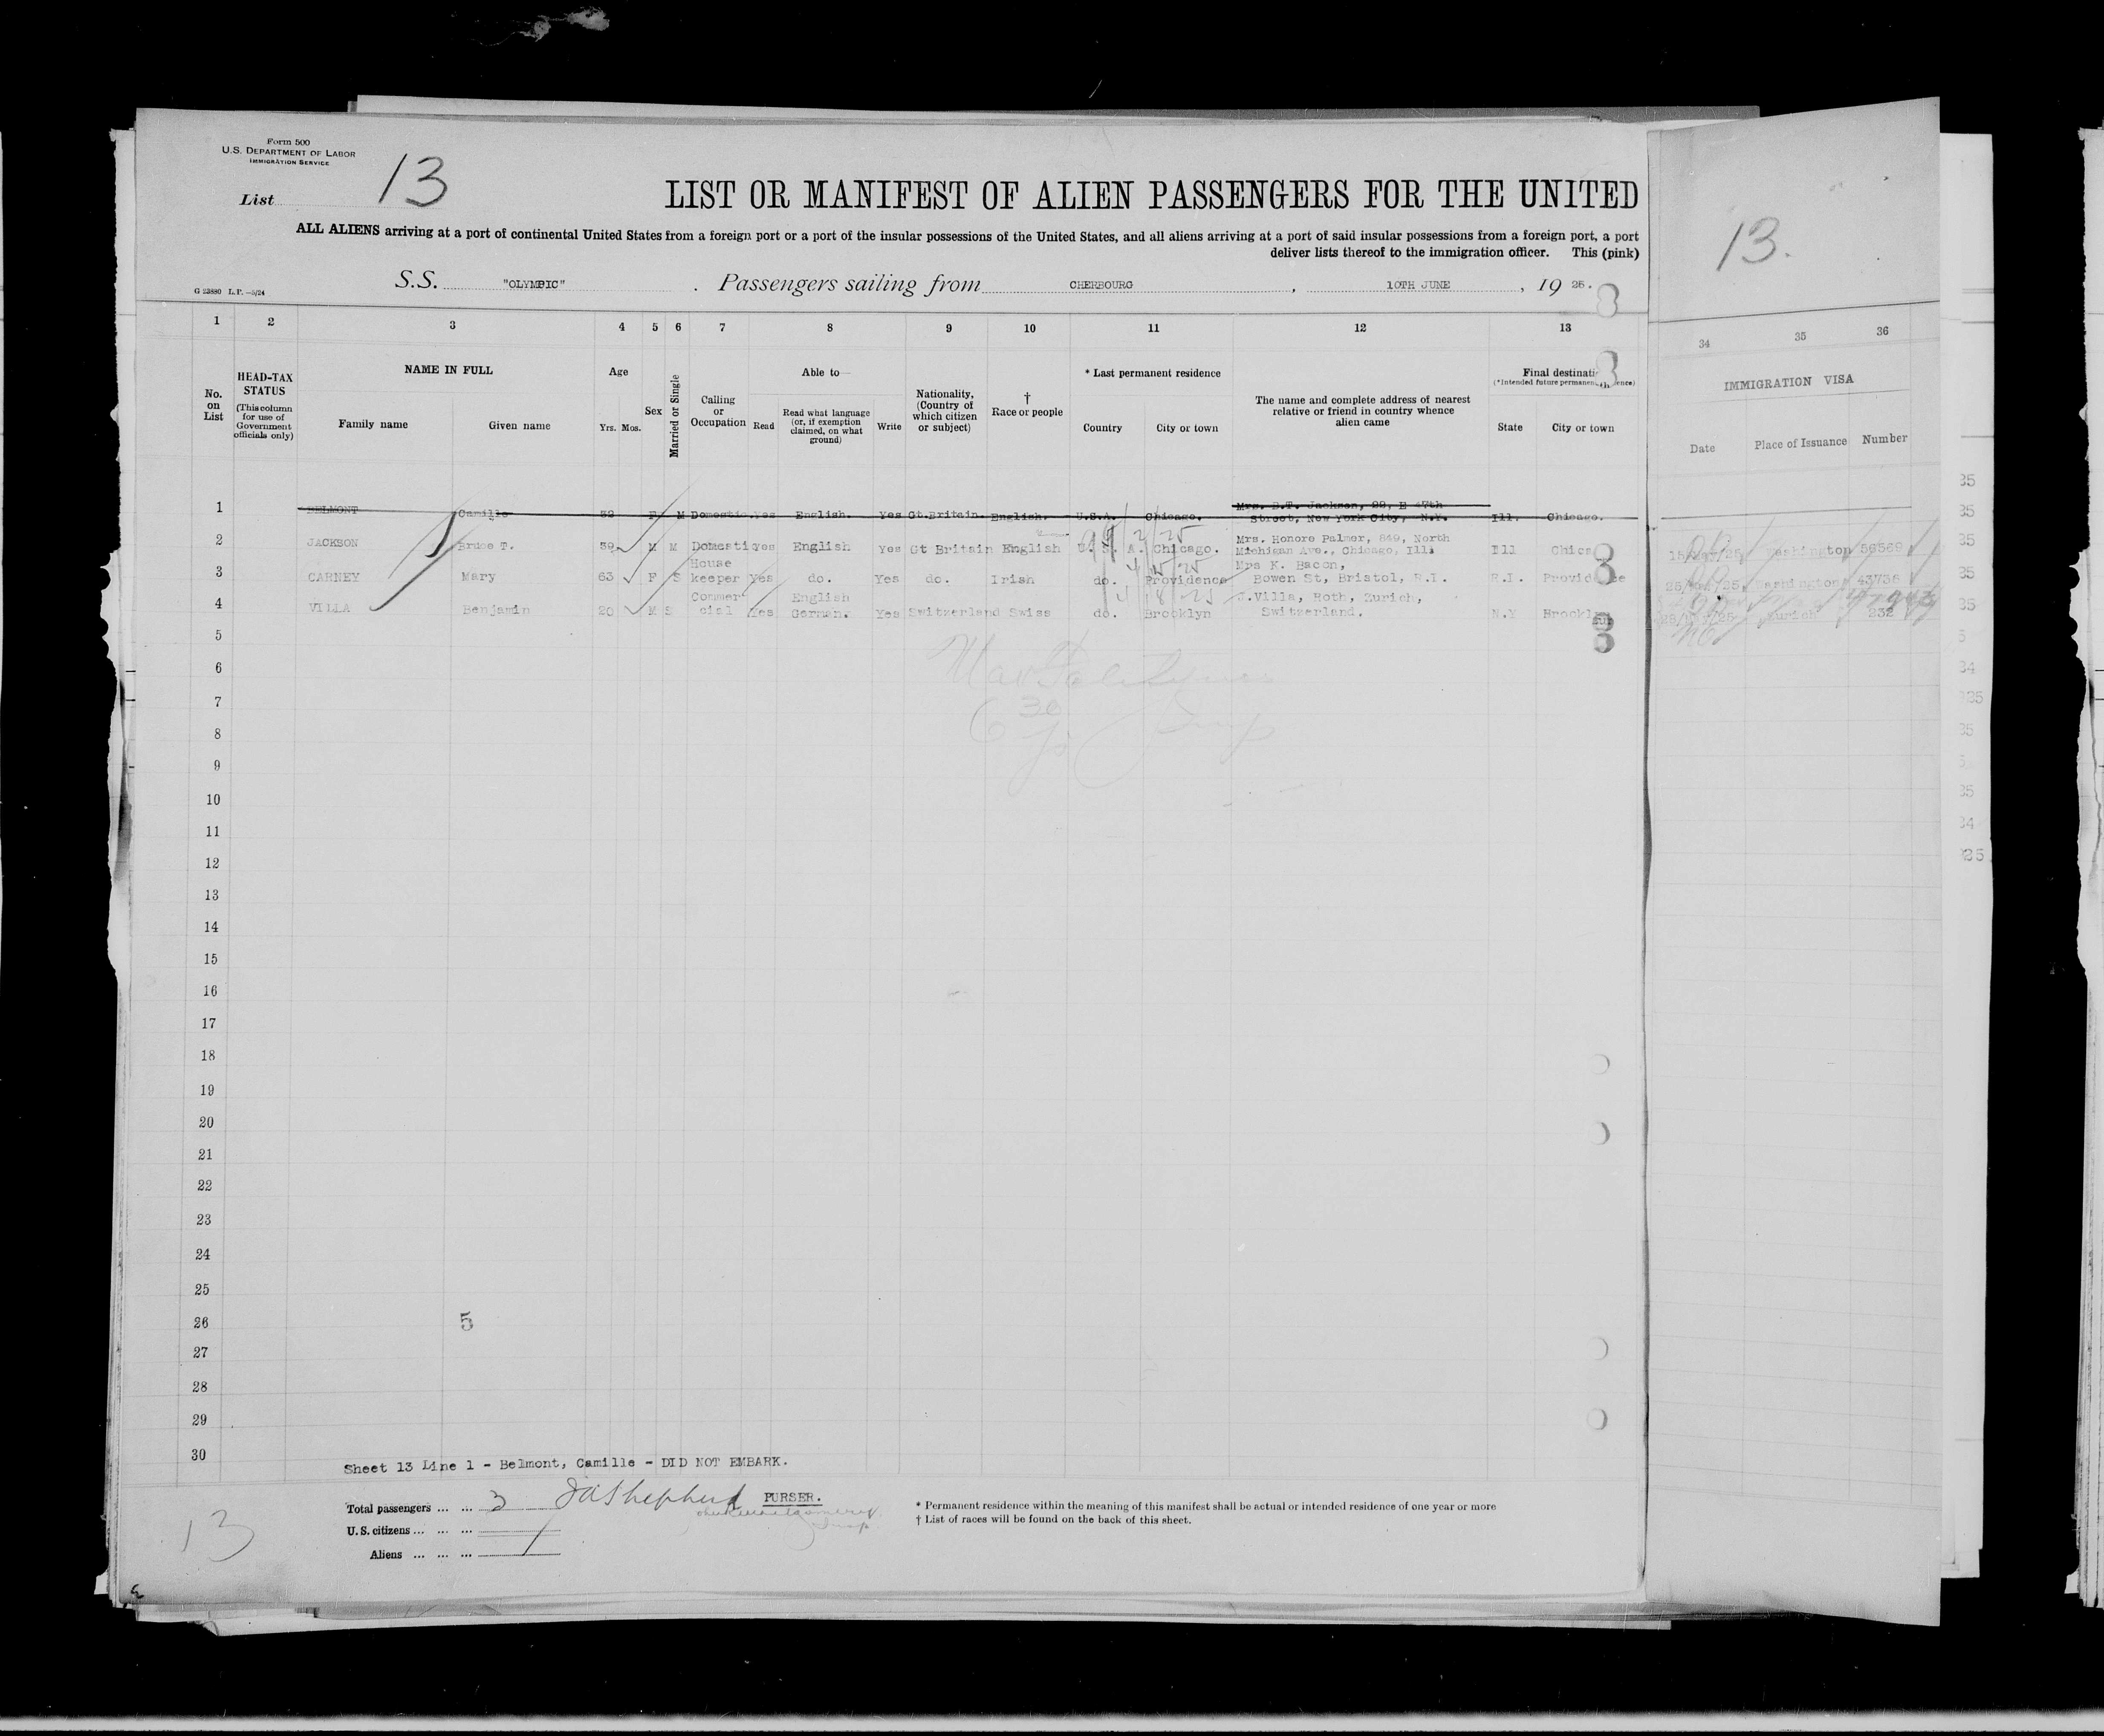 Form 500
U.S. DEPARTMENT OF LABOR
IMMIGRATION SERVICE
List 13
LIST OR MANIFEST OF ALIEN PASSENGERS FOR THE UNITED
ALL ALIENS arriving at a port of continental United States from a foreign port or a port of the insular possessions of the United States, and all aliens arriving at a port of said insular possessions from a foreign port, a port
deliver lists thereof to the immigration officer. This (pink)
13.
G 23880 L.P.—5/24
S.S. "OLYMPIC" . Passengers sailing from CHERBOURG , 10TH JUNE , 19 25.
1 2 3 4 5 6 7 8 9 10 11 12 13 34 35 36
No. on List
HEAD-TAX STATUS (This column for use of Government officials only)
NAME IN FULL
Family name
Given name
Age
Yrs. Mos.
Sex
Married or Single
Calling or Occupation
Able to—
Read
Read what language (or, if exemption claimed, on what ground)
Write
Nationality, (Country of which citizen or subject)
† Race or people
* Last permanent residence
Country
City or town
The name and complete address of nearest relative or friend in country whence alien came
Final destinati
(*Intended future permanen
State
City or town
IMMIGRATION VISA
Date
Place of Issuance
Number
1 BELMONT Camille 32 F M Domestic Yes English. Yes Gt.Britain. English. U.S.A. Chicago. Mrs. B.T. Jackson, 22, E 47th Street, New York City, N.Y. Ill. Chicago.
2 JACKSON Bruce T. 39 M M Domestic Yes English Yes Gt Britain English U.S.A. Chicago. Mrs. Honore Palmer, 849, North Michigan Ave., Chicago, Ill. Ill Chica Washington 56569
3 CARNEY Mary 63 F S House keeper Yes do. Yes do. Irish do. Providence Mrs K. Bacon, Bowen St, Bristol, R.I. R.I. Providence Washington 43736
4 VILLA Benjamin 20 M S Commercial Yes English German. Yes Switzerland Swiss do. Brooklyn J.Villa, Roth, Zurich, Switzerland. N.Y Brooklyn Zurich 232
5
6
7
8
9
10
11
12
13
14
15
16
17
18
19
20
21
22
23
24
25
26 5
27
28
29
30
Sheet 13 Line 1 - Belmont, Camille - DID NOT EMBARK.
Total passengers ... ... 3 PURSER.
U.S. citizens ... ... ...
Aliens ... ... ...
* Permanent residence within the meaning of this manifest shall be actual or intended residence of one year or more
† List of races will be found on the back of this sheet.
13